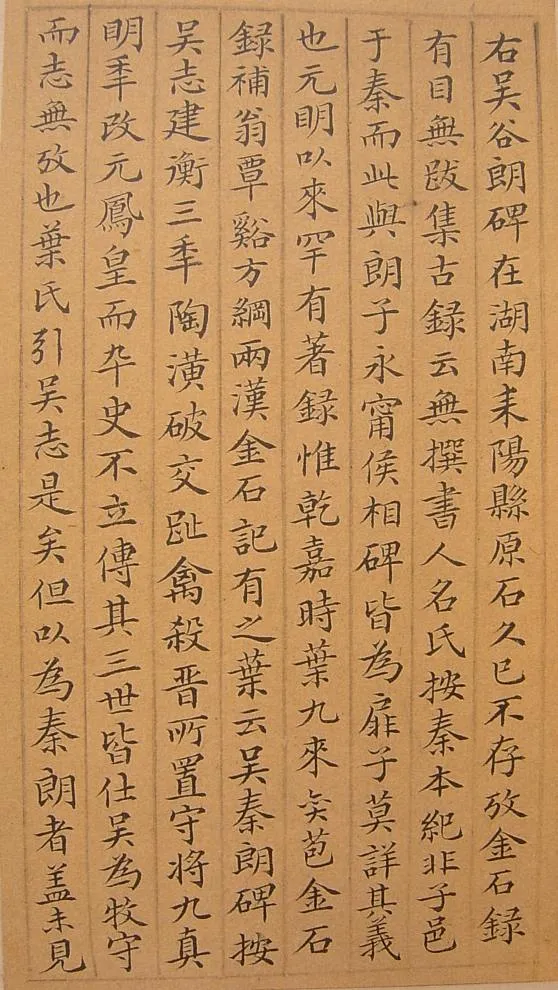 右吴谷朗碑在湖南耒陽縣原石久已不存攷金石録
有目無跋集古録云無撰書人名氏按秦本紀非子邑
于秦而此與朗子永甯侯相碑皆為扉子莫詳其義
也元眀以來罕有著録惟乾嘉時葉九來奕苞金石
録補翁覃谿方綱兩漢金石記有之葉云吴秦朗碑按
吴志建衡三秊陶潢破交趾禽殺晋所置守将九真
眀秊改元鳳皇而卒史不立傳其三世皆仕吴為牧守
而志無攷也葉氏引吴志是矣但以為秦朗者盖未見